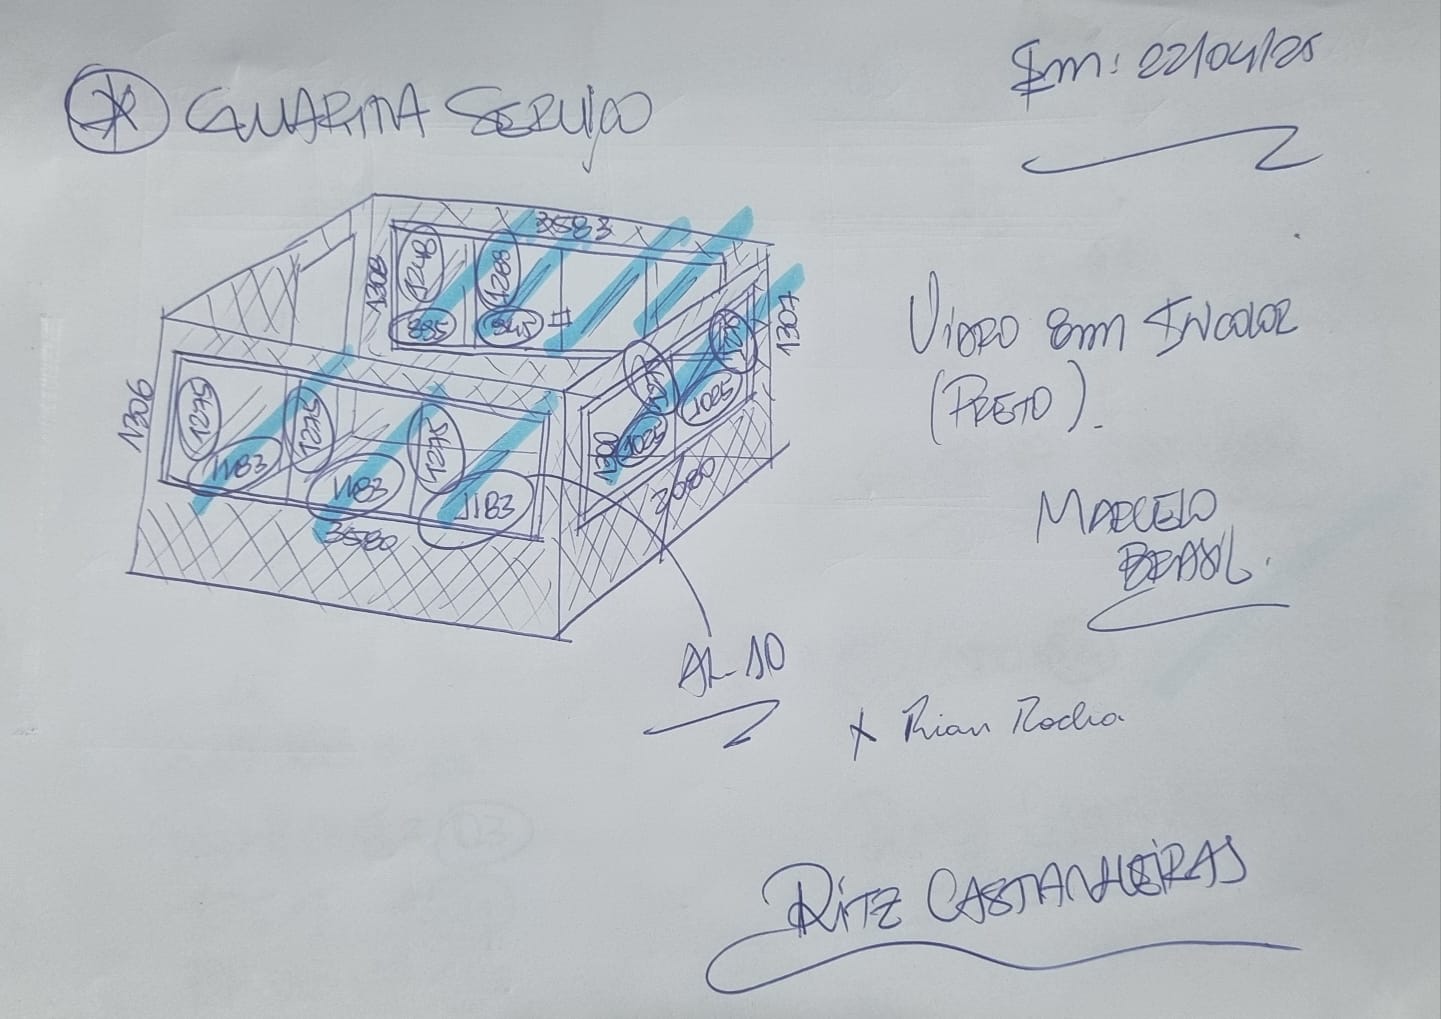 GUARITA SERVIÇO
Em: 22/04/25
3583
1308
1248
1288
895
1307
1306
1275
1275
1275
1183
1183
1183
1025
1025
3580
2080
VIDRO 8mm INCOLOR
(PRETO).
MARCELO
BRASIL.
AL-10
x Rian Rocha
RITZ CASTANHEIRAS